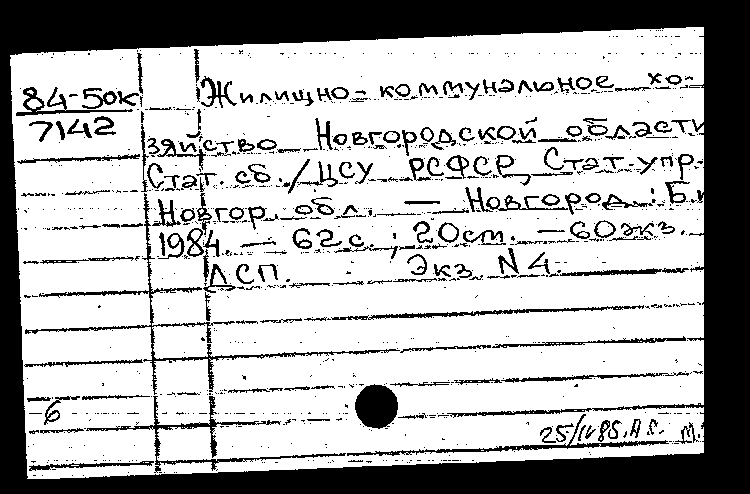 84-5ок
7142
Жилищно-коммунальное хо-
зяйство Новгородской области
Стат. сб./ЦСУ РСФСР, Стат. упр.
Новгор. обл. — Новгород: Б.и
1984. — 62 с.; 20 ст. — 60 экз.
ДСП. Экз. N 4.
6
25/IV 85. М.